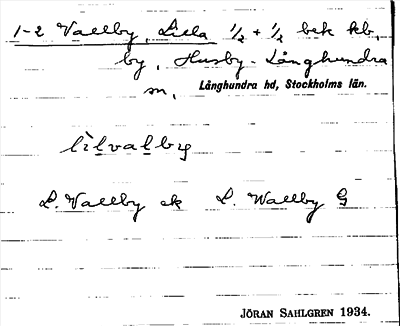 1-2 Vallby, Lilla 1/2 + 1/2 bek kb,
by, Husby-Långhundra
sn,
Långhundra hd, Stockholms län.
lìlvalby
L. Vallby ek L. Wallby G
JÖRAN SAHLGREN 1934.